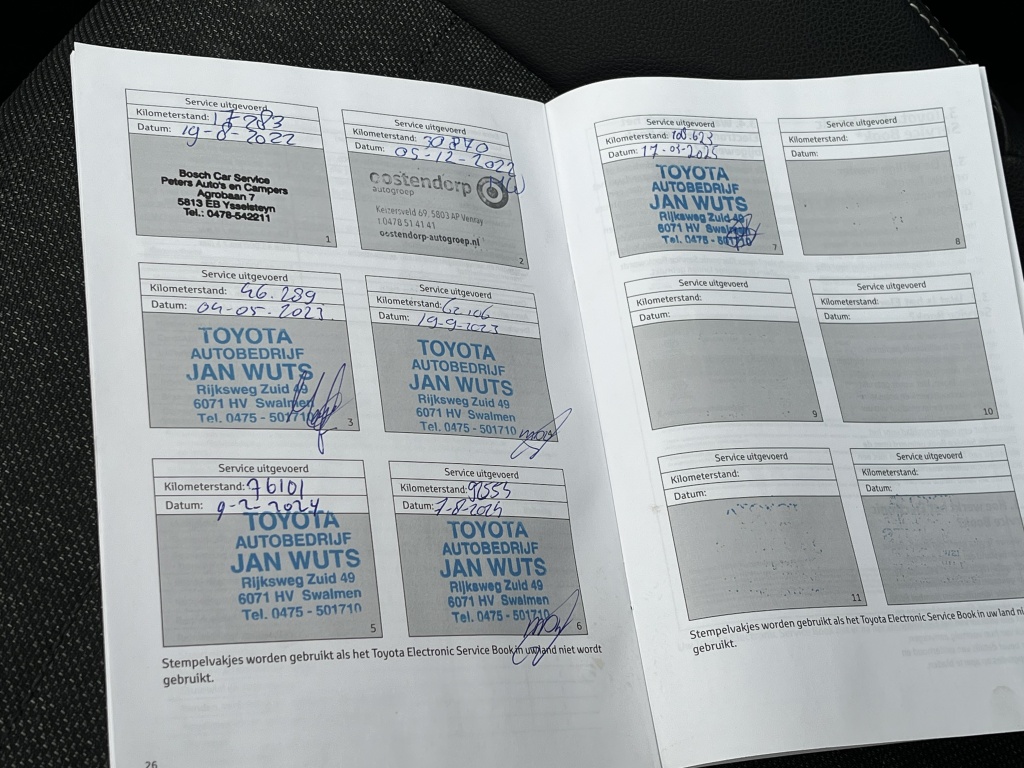 Service uitgevoerd
Kilometerstand: 17283
Datum: 19-8-2022
Bosch Car Service
Peters Auto's en Campers
Agrobaan 7
5813 EB Ysselsteyn
Tel.: 0478-542211
1
Service uitgevoerd
Kilometerstand: 30870
Datum: 05-12-2022
oostendorp
autogroep
Keizersveld 69, 5803 AP Venray
t 0478 51 41 41
oostendorp-autogroep.nl
2
Service uitgevoerd
Kilometerstand: 46.289
Datum: 04-05-2023
TOYOTA
AUTOBEDRIJF
JAN WUTS
Rijksweg Zuid 49
6071 HV Swalmen
Tel. 0475 - 501710
3
Service uitgevoerd
Kilometerstand: 62.106
Datum: 19-9-2023
TOYOTA
AUTOBEDRIJF
JAN WUTS
Rijksweg Zuid 49
6071 HV Swalmen
Tel. 0475 - 501710
Service uitgevoerd
Kilometerstand: 76101
Datum: 9-2-2024
TOYOTA
AUTOBEDRIJF
JAN WUTS
Rijksweg Zuid 49
6071 HV Swalmen
Tel. 0475 - 501710
5
Service uitgevoerd
Kilometerstand: 92555
Datum: 7-8-2024
TOYOTA
AUTOBEDRIJF
JAN WUTS
Rijksweg Zuid 49
6071 HV Swalmen
Tel. 0475 - 501710
6
Stempelvakjes worden gebruikt als het Toyota Electronic Service Book in uw land niet wordt
gebruikt.
26
Service uitgevoerd
Kilometerstand: 108.623
Datum: 17-03-2025
TOYOTA
AUTOBEDRIJF
JAN WUTS
Rijksweg Zuid 49
6071 HV Swalmen
Tel. 0475 - 501710
7
Service uitgevoerd
Kilometerstand:
Datum:
8
Service uitgevoerd
Kilometerstand:
Datum:
9
Service uitgevoerd
Kilometerstand:
Datum:
10
Service uitgevoerd
Kilometerstand:
Datum:
11
Service uitgevoerd
Kilometerstand:
Datum:
Stempelvakjes worden gebruikt als het Toyota Electronic Service Book in uw land
gebruikt.